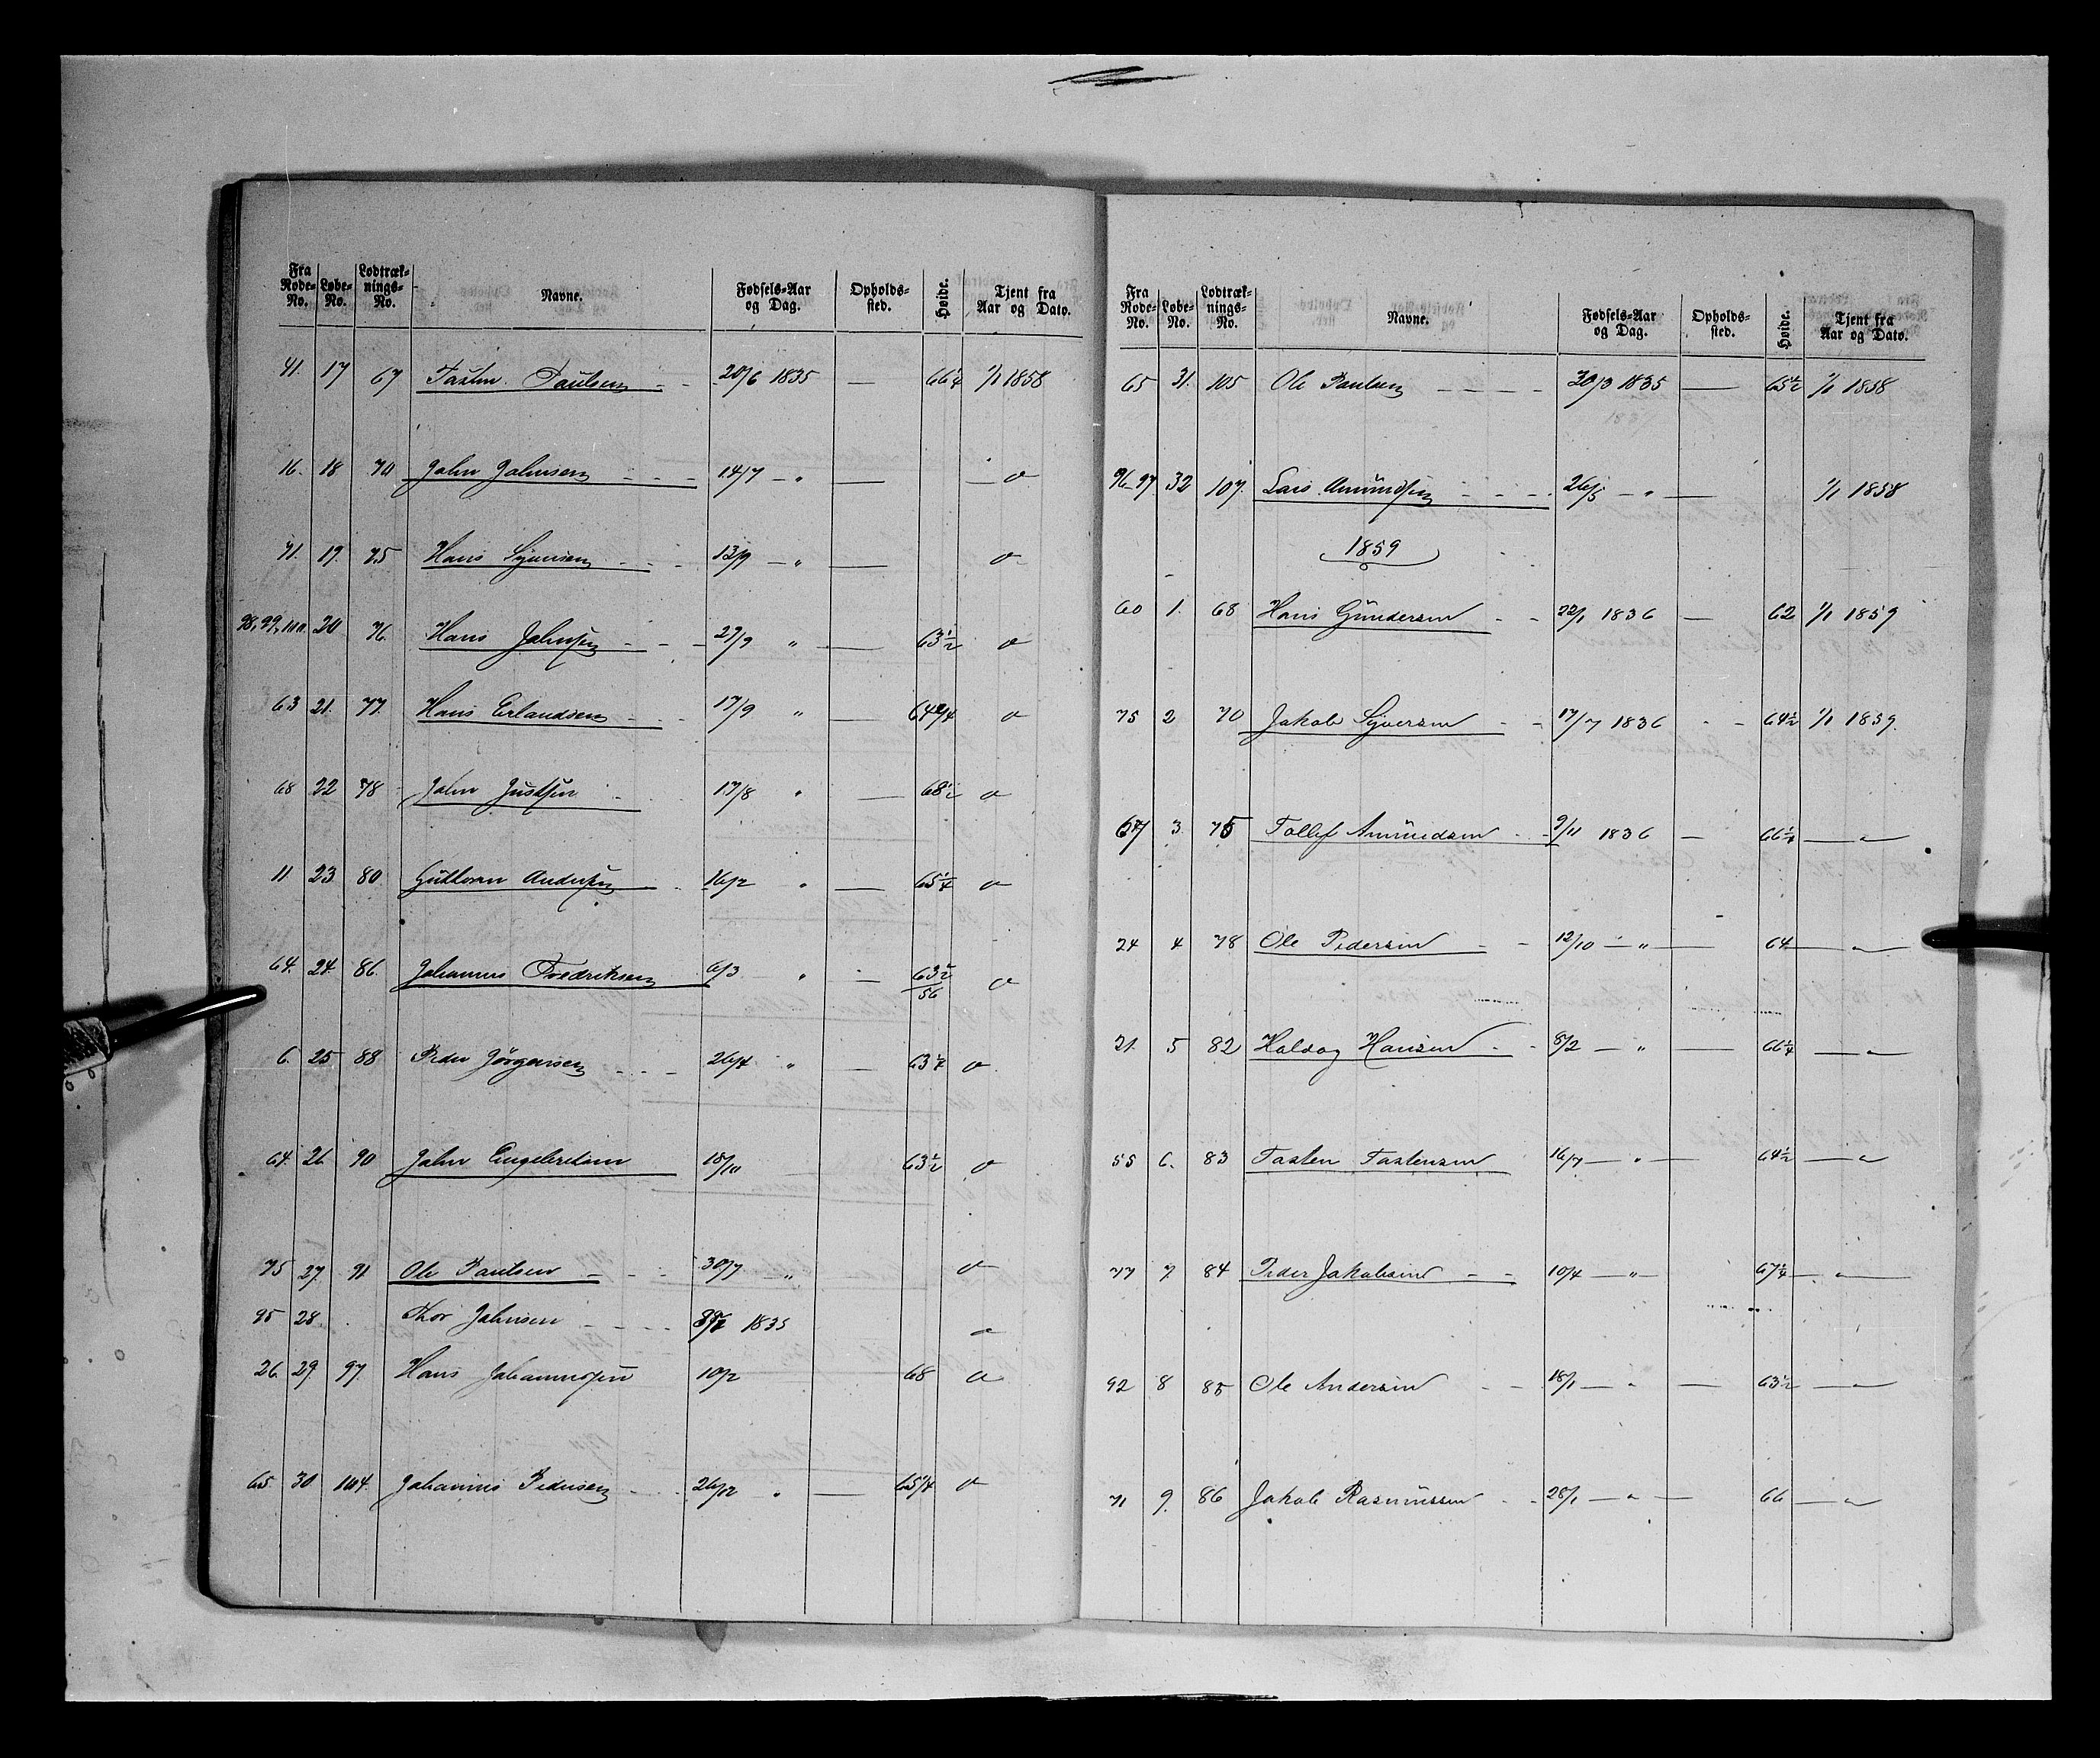 Fra Rode-No. | Løbe-No. | Lodtræk-nings-No. | Navne. | Fødsels-Aar og Dag. | Opholds-sted. | Høide. | Tjent fra Aar og Dato.
41. 17 67 Tasten Paulsen - - 20/6 1835 — 66 1/4 1/1 1858
16. 18 70 John Johnsen - - - 14/7 — " — — o
71. 19. 75 Hans Syversen - - - 13/9 — " — o
98, 99, 100. 20 76. Hans Johnsen - - - 29/9 " — 63 1/2 o
63 21. 77. Hans Erlandsen - - - 17/9 " — 64 2/4 o
68 22 78 John Justsen - - 17/8 " — 68 1/2 o
11. 23 80. Guttorm Andersen - 16/2 " — 65 1/4 o
64. 24. 86. Johannes Fredriksen 6/3 " — 63 1/2 / 56 o
6. 25 88 Peder Jörgensen - - - 26/4 " — 63 1/4 o
64. 26 90 John Engebretsen 18/10 63 1/2 o
75 27. 91 Ole Paulsen - - - 30/7 — " o
95 28. Thor Johnsen - - - - 1835 o
26. 29. 97 Hans Johannessen 10/2 68 o
65 30 104. Johannes Pedersen - - 26/12 " — 65 1/4 o
Fra Rode-No. | Løbe-No. | Lodtræk-nings-No. | Navne. | Fødsels-Aar og Dag. | Opholds-sted. | Høide. | Tjent fra Aar og Dato.
65 31. 105 Ole Paulsen - - - - 30/3 1835 — 65 1/2 1/1 1858
96-97 32 107. Lars Amundsen - - - 26/5 — " — 1/1 1858
1859
60 1. 68 Hans Gundersen - - 22/1 1836 — 62 1/1 1859
75 2 70 Jakob Syversen - - 17/7 1836 - - 64 1/2 1/1 1859.
67 3. 75 Tollef Amundsen - - 9/11 1836 — 66 1/4 — " —
24 4 78 Ole Pedersen - - 12/10 — " — 64 — " —
21. 5 82 Haldog Hansen - - 8/2 — " — 66 1/4 — " —
55 6. 83 Tasten Tastensen 16/7 — " — 64 1/2 — " —
77 7 84 Peder Jakobsen - - 10/4 — " — 67 1/4 — " —
92 8 85 Ole Andersen - - 18/1 — " — 63 1/2 — " —
71 9. 86 Jakob Rasmussen - - 28/1 — " — 66 — " —